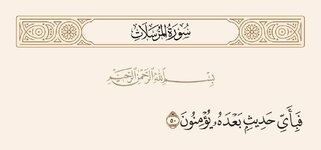 سُورَةُ المُرْسَلَات
بِسْمِ اللَّهِ الرَّحْمَٰنِ الرَّحِيمِ
فَبِأَيِّ حَدِيثِۭ بَعْدَهُۥ يُؤْمِنُونَ ٥٠